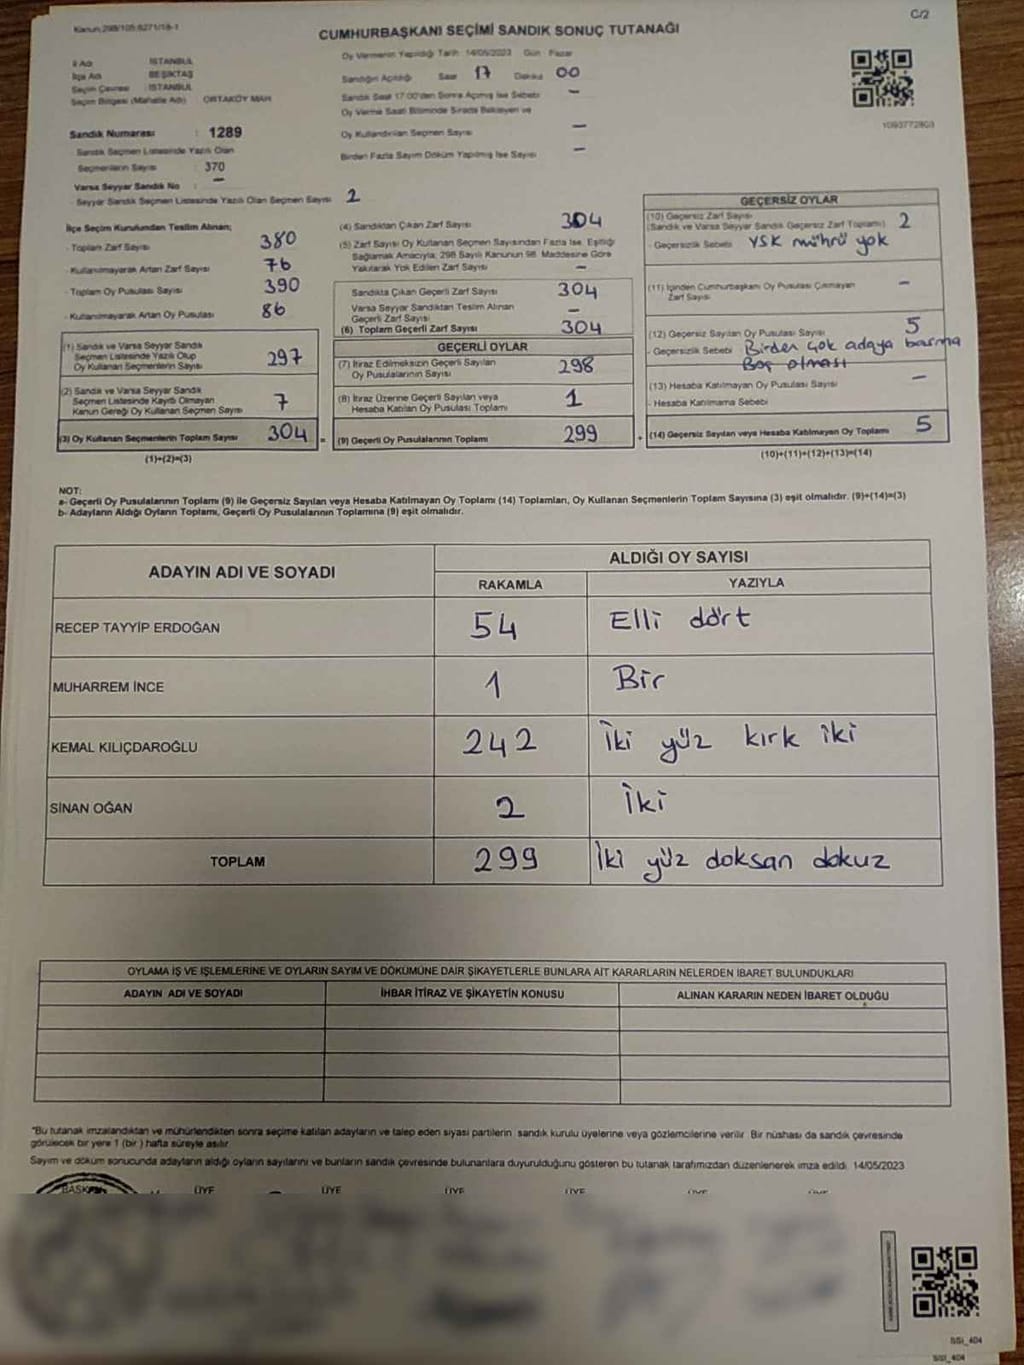 Kanun:298/105;6271/18-1
C/2
CUMHURBAŞKANI SEÇİMİ SANDIK SONUÇ TUTANAĞI
İl Adı İSTANBUL
İlçe Adı BEŞİKTAŞ
Seçim Çevresi İSTANBUL
Seçim Bölgesi (Mahalle Adı) ORTAKÖY MAH
Sandık Numarası : 1289
Sandık Seçmen Listesinde Yazılı Olan
Seçmenlerin Sayısı : 370
Varsa Seyyar Sandık No : –
- Seyyar Sandık Seçmen Listesinde Yazılı Olan Seçmen Sayısı 2
Oy Vermenin Yapıldığı Tarih 14/05/2023 Gün Pazar
Sandığın Açıldığı Saat 17 Dakika 00
Sandık Saat 17:00'den Sonra Açılmış İse Sebebi –
Oy Verme Saati Bitiminde Sırada Bekleyen ve
Oy Kullandırılan Seçmen Sayısı –
Birden Fazla Sayım Döküm Yapılmış İse Sayısı –
İlçe Seçim Kurulundan Teslim Alınan;
- Toplam Zarf Sayısı 380
- Kullanılmayarak Artan Zarf Sayısı 76
- Toplam Oy Pusulası Sayısı 390
- Kullanılmayarak Artan Oy Pusulası 86
(1) Sandık ve Varsa Seyyar Sandık
Seçmen Listesinde Yazılı Olup
Oy Kullanan Seçmenlerin Sayısı 297
(2) Sandık ve Varsa Seyyar Sandık
Seçmen Listesinde Kayıtlı Olmayan
Kanun Gereği Oy Kullanan Seçmen Sayısı 7
(3) Oy Kullanan Seçmenlerin Toplam Sayısı 304 =
(1)+(2)=(3)
(4) Sandıktan Çıkan Zarf Sayısı 304
(5) Zarf Sayısı Oy Kullanan Seçmen Sayısından Fazla İse, Eşitliği
Sağlamak Amacıyla, 298 Sayılı Kanunun 98. Maddesine Göre
Yakılarak Yok Edilen Zarf Sayısı –
Sandıkta Çıkan Geçerli Zarf Sayısı 304
Varsa Seyyar Sandıktan Teslim Alınan
Geçerli Zarf Sayısı –
(6) Toplam Geçerli Zarf Sayısı 304
GEÇERLİ OYLAR
(7) İtiraz Edilmeksizin Geçerli Sayılan
Oy Pusulalarının Sayısı 298
(8) İtiraz Üzerine Geçerli Sayılan veya
Hesaba Katılan Oy Pusulası Toplamı 1
(9) Geçerli Oy Pusulalarının Toplamı 299 +
GEÇERSİZ OYLAR
(10) Geçersiz Zarf Sayısı
(Sandık ve Varsa Seyyar Sandık Geçersiz Zarf Toplamı) 2
- Geçersizlik Sebebi YSK mührü yok
(11) İçinden Cumhurbaşkanı Oy Pusulası Çıkmayan
Zarf Sayısı –
(12) Geçersiz Sayılan Oy Pusulası Sayısı 5
- Geçersizlik Sebebi Birden çok adaya basma
Boş olması
(13) Hesaba Katılmayan Oy Pusulası Sayısı –
- Hesaba Katılmama Sebebi
(14) Geçersiz Sayılan veya Hesaba Katılmayan Oy Toplamı 5
(10)+(11)+(12)+(13)=(14)
NOT:
a- Geçerli Oy Pusulalarının Toplamı (9) ile Geçersiz Sayılan veya Hesaba Katılmayan Oy Toplamı (14) Toplamları, Oy Kullanan Seçmenlerin Toplam Sayısına (3) eşit olmalıdır. (9)+(14)=(3)
b- Adayların Aldığı Oyların Toplamı, Geçerli Oy Pusulalarının Toplamına (9) eşit olmalıdır.
ADAYIN ADI VE SOYADI ALDIĞI OY SAYISI
RAKAMLA YAZIYLA
RECEP TAYYİP ERDOĞAN 54 Elli dört
MUHARREM İNCE 1 Bir
KEMAL KILIÇDAROĞLU 242 İki yüz kırk iki
SİNAN OĞAN 2 İki
TOPLAM 299 İki yüz doksan dokuz
OYLAMA İŞ VE İŞLEMLERİNE VE OYLARIN SAYIM VE DÖKÜMÜNE DAİR ŞİKAYETLERLE BUNLARA AİT KARARLARIN NELERDEN İBARET BULUNDUKLARI
ADAYIN ADI VE SOYADI İHBAR İTİRAZ VE ŞİKAYETİN KONUSU ALINAN KARARIN NEDEN İBARET OLDUĞU
"Bu tutanak imzalandıktan ve mühürlendikten sonra seçime katılan adayların ve talep eden siyasi partilerin sandık kurulu üyelerine veya gözlemcilerine verilir. Bir nüshası da sandık çevresinde
görülecek bir yere 1 (bir) hafta süreyle asılır.
Sayım ve döküm sonucunda adayların aldığı oyların sayılarını ve bunların sandık çevresinde bulunanlara duyurulduğunu gösteren bu tutanak tarafımızdan düzenlenerek imza edildi. 14/05/2023
BAŞKAN ÜYE ÜYE ÜYE ÜYE ÜYE ÜYE
SSI_404
SSI_404